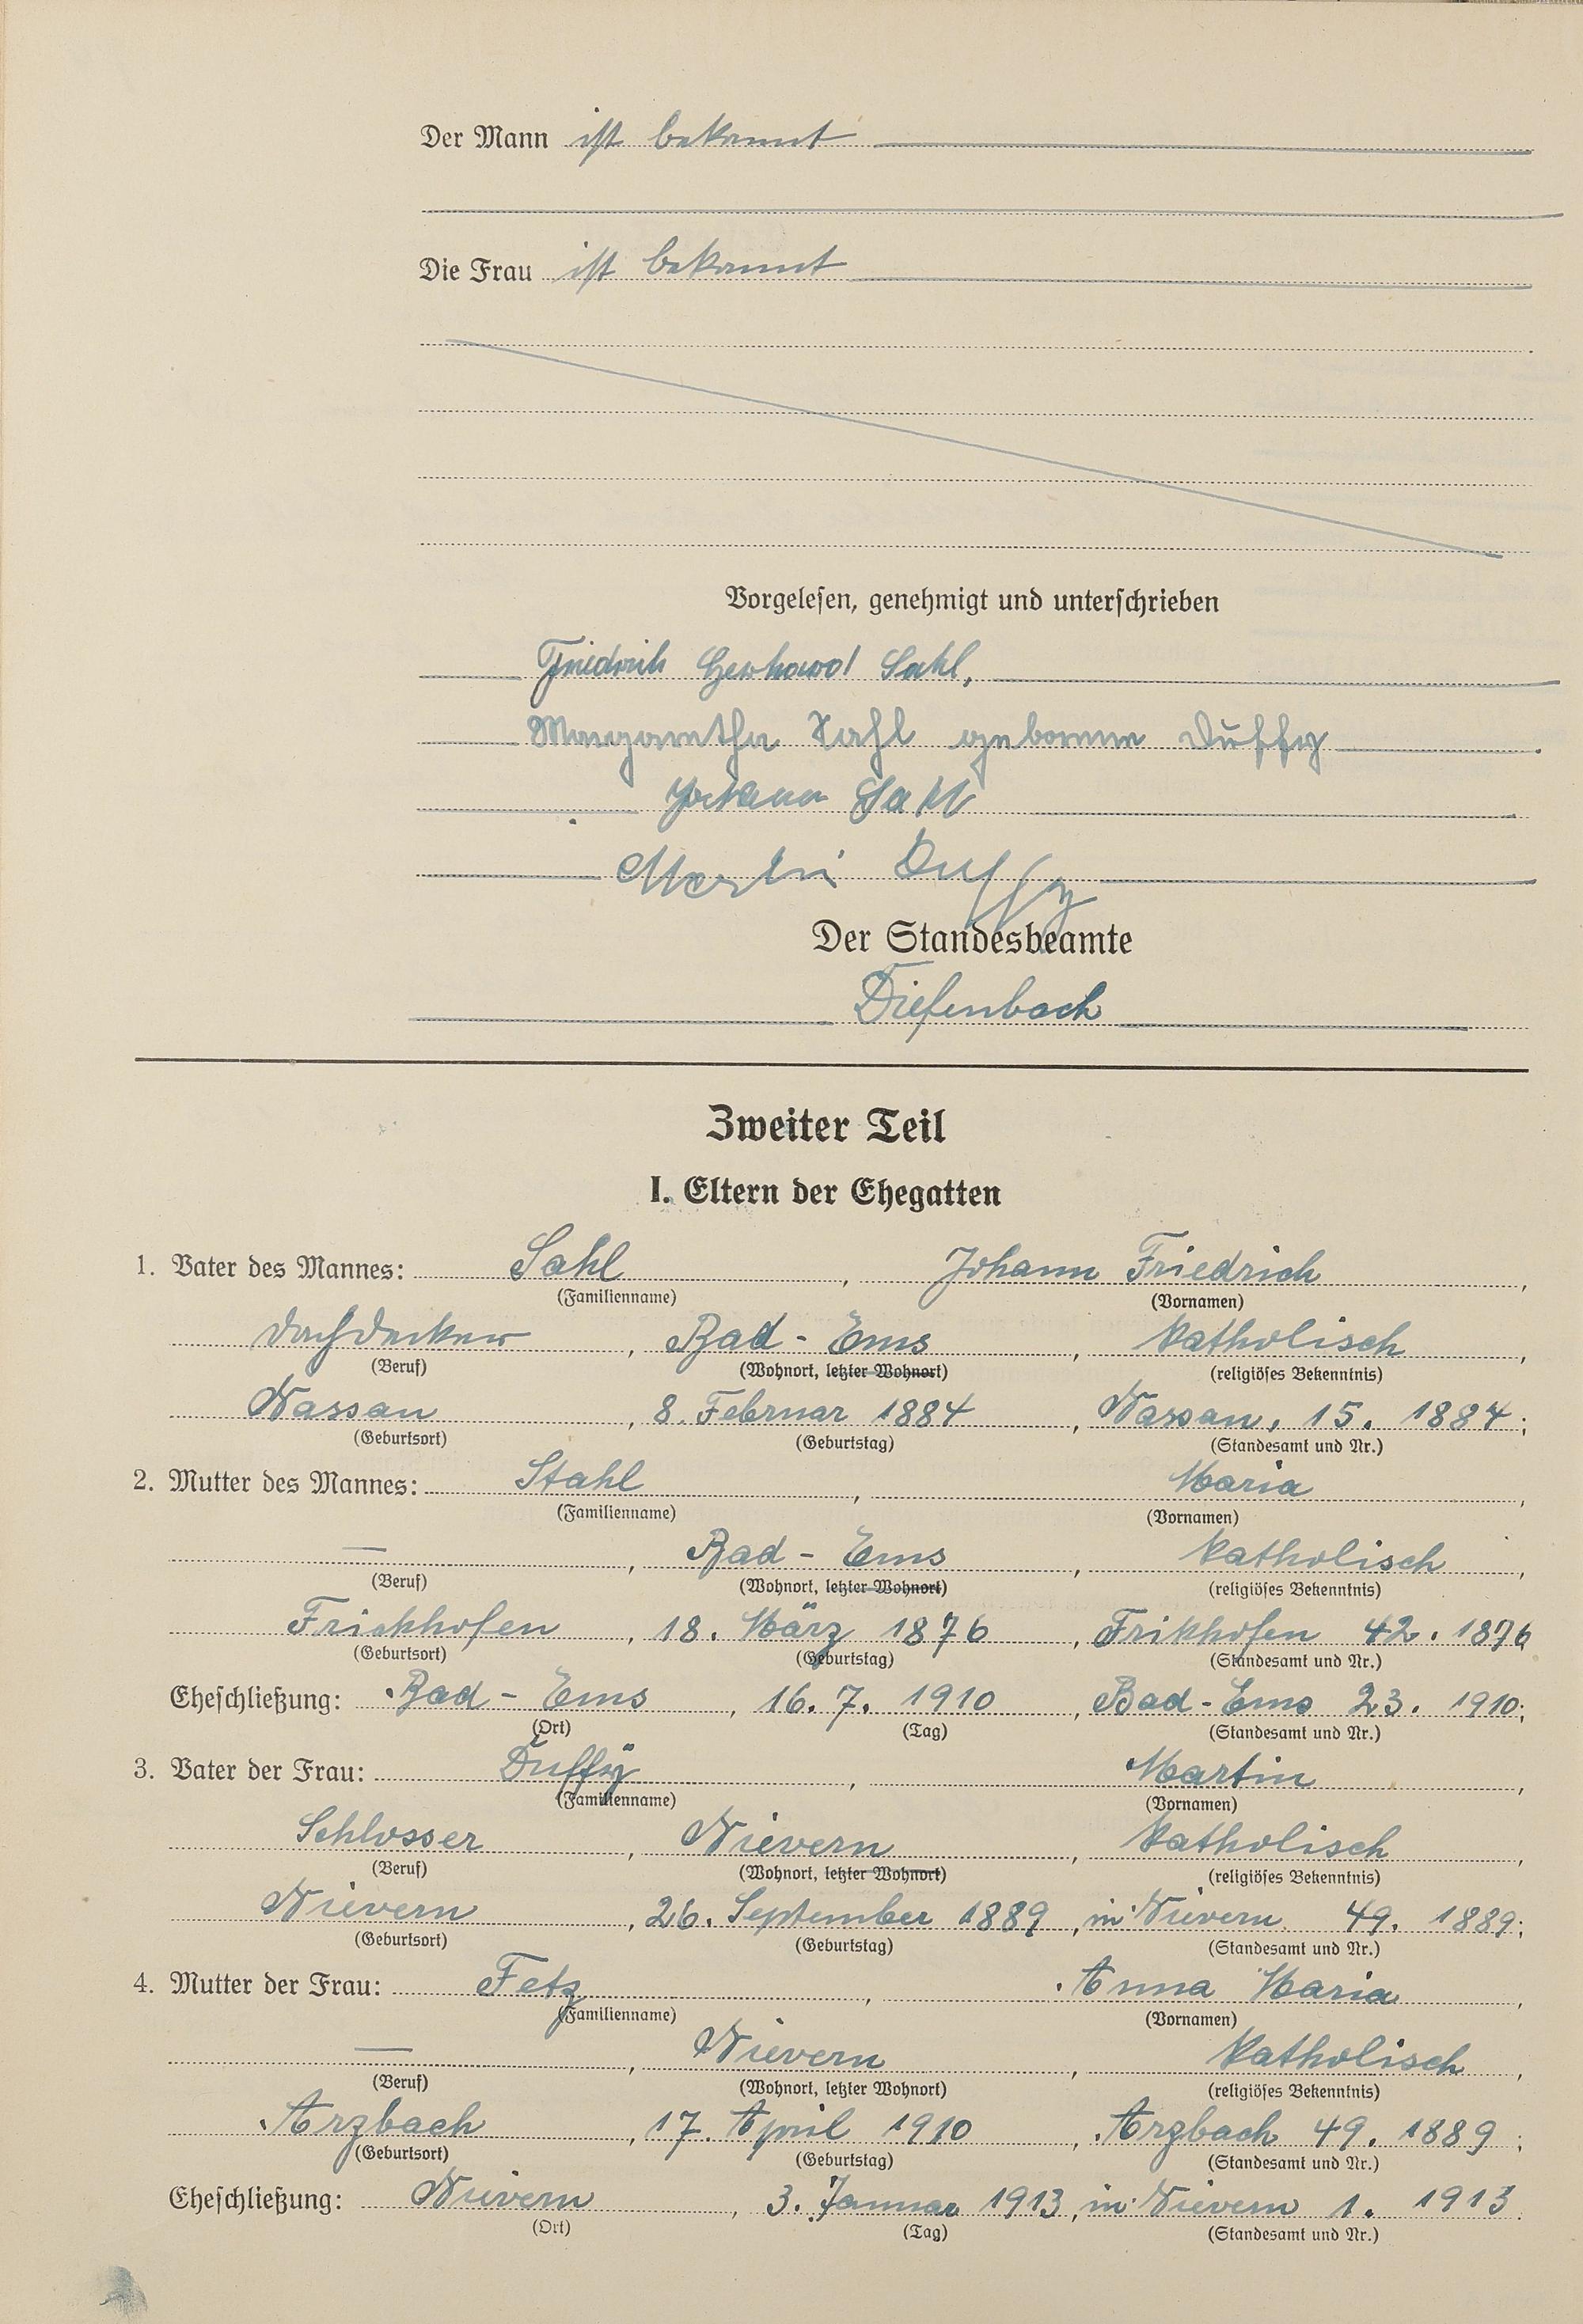 Der Mann ist bekannt
Die Frau ist bekannt
Vorgelesen, genehmigt und unterschrieben
Friedrich Gerhard Sahl,
Margaretha Sahl geborene Duffy
Johann Sahl
Martin Duffy
Der Standesbeamte
Diefenbach
Zweiter Teil
I. Eltern der Ehegatten
1. Vater des Mannes: Sahl, Johann Friedrich
(Familienname) (Vornamen)
Dachdecker, Bad-Ems, katholisch,
(Beruf) (Wohnort, letzter Wohnort) (religiöses Bekenntnis)
Nassau, 8. Februar 1884, Nassau, 15. 1884;
(Geburtsort) (Geburtstag) (Standesamt und Nr.)
2. Mutter des Mannes: Stahl, Maria,
(Familienname) (Vornamen)
—, Bad-Ems, katholisch,
(Beruf) (Wohnort, letzter Wohnort) (religiöses Bekenntnis)
Frickhofen, 18. März 1876, Frikhofen 42. 1876
(Geburtsort) (Geburtstag) (Standesamt und Nr.)
Eheschließung: Bad-Ems, 16. 7. 1910, Bad-Ems 23. 1910;
(Ort) (Tag) (Standesamt und Nr.)
3. Vater der Frau: Duffÿ, Martin,
(Familienname) (Vornamen)
Schlosser, Nievern, katholisch,
(Beruf) (Wohnort, letzter Wohnort) (religiöses Bekenntnis)
Nievern, 26. September 1889, in Nievern 49. 1889;
(Geburtsort) (Geburtstag) (Standesamt und Nr.)
4. Mutter der Frau: Fetz, Anna Maria,
(Familienname) (Vornamen)
—, Nievern, katholisch,
(Beruf) (Wohnort, letzter Wohnort) (religiöses Bekenntnis)
Arzbach, 17. April 1910, Arzbach 49. 1889;
(Geburtsort) (Geburtstag) (Standesamt und Nr.)
Eheschließung: Nievern, 3. Januar 1913, in Nievern 1. 1913.
(Ort) (Tag) (Standesamt und Nr.)